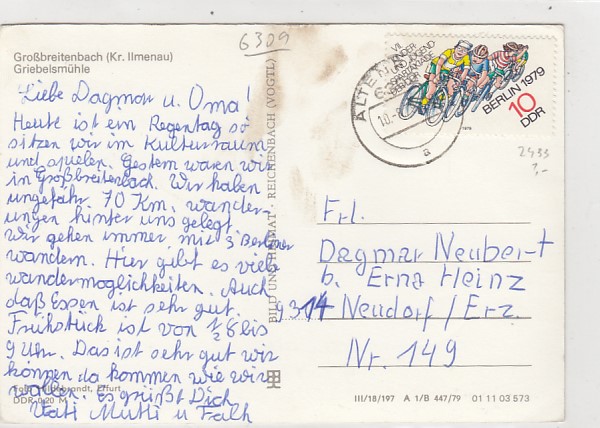 Großbreitenbach (Kr. Ilmenau)
Griebelsmühle
6309
Liebe Dagmar u. Oma!
Heute ist ein Regentag so
sitzen wir im Kulturraum
und spielen. Gestern waren wir
in Großbreitenbach. Wir haben
ungefähr 70 Km. wander-
ungen hinter uns gelegt.
wir gehen immer mit 3 Berliner
wandern. Hier gibt es viele
wandermöglichkeiten. Auch
daß Essen ist sehr gut.
Frühstück ist von ½8 bis
9 Uhr. Das ist sehr gut wir
können da kommen wie wir
wollen. Es grüßt Dich
Vati Mutti u Falk
Foto: Hildebrandt, Erfurt
DDR 0,20 M
BILD UND HEIMAT · REICHENBACH (VOGTL)
VII.
KINDER
UND JUGEND
SPARTAKIADE
BERLIN 1979
10
DDR
1979
ALTE
10.
a
2433
?,-
Frl.
Dagmar Neubert
b. Erna Heinz
9314 Neudorf/Erz.
Nr. 149
III/18/197 A 1/B 447/79 01 11 03 573